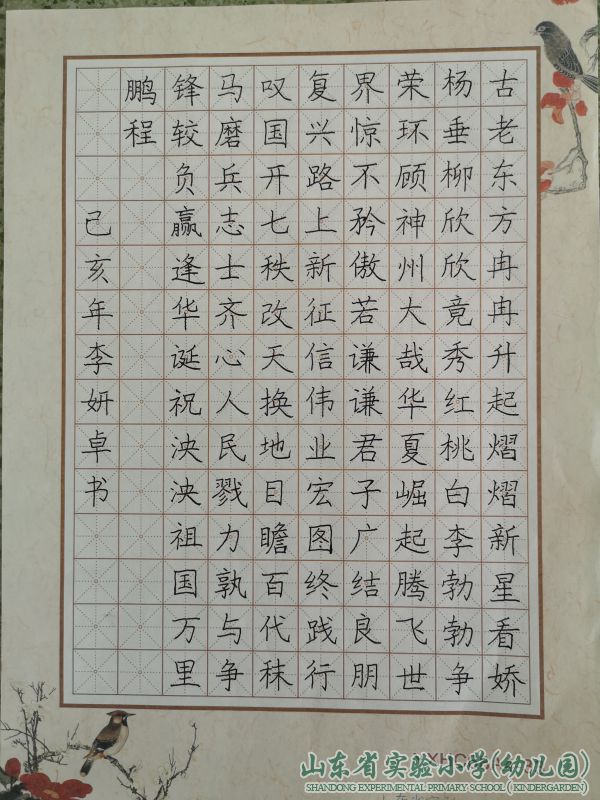 古老东方冉冉升起熠熠新星看娇
杨垂柳欣欣竟秀红桃白李勃勃争
荣环顾神州大哉华夏崛起腾飞世
界惊不矜傲若谦谦君子广结良朋
复兴路上新征信伟业宏图终践行
叹国开七秩改天换地目瞻百代秣
马磨兵志士齐心人民戮力孰与争
锋较负赢逢华诞祝泱泱祖国万里
鹏程
己亥年李妍卓书
山东省实验小学(幼儿园)
SHANDONG EXPERIMENTAL PRIMARY SCHOOL (KINDERGARTEN)